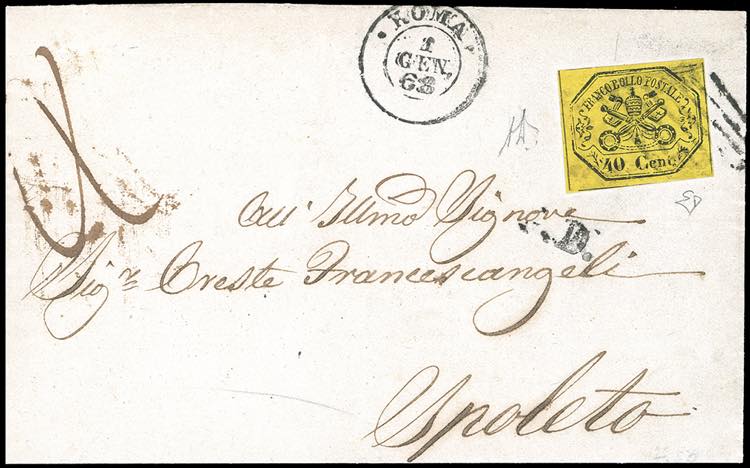 ROMA
1
GEN.
68
FRANCO BOLLO POSTALE
40 Cent.
D.
All' Illmo Signore
Sigr. Oreste Francescangeli
Spoleto